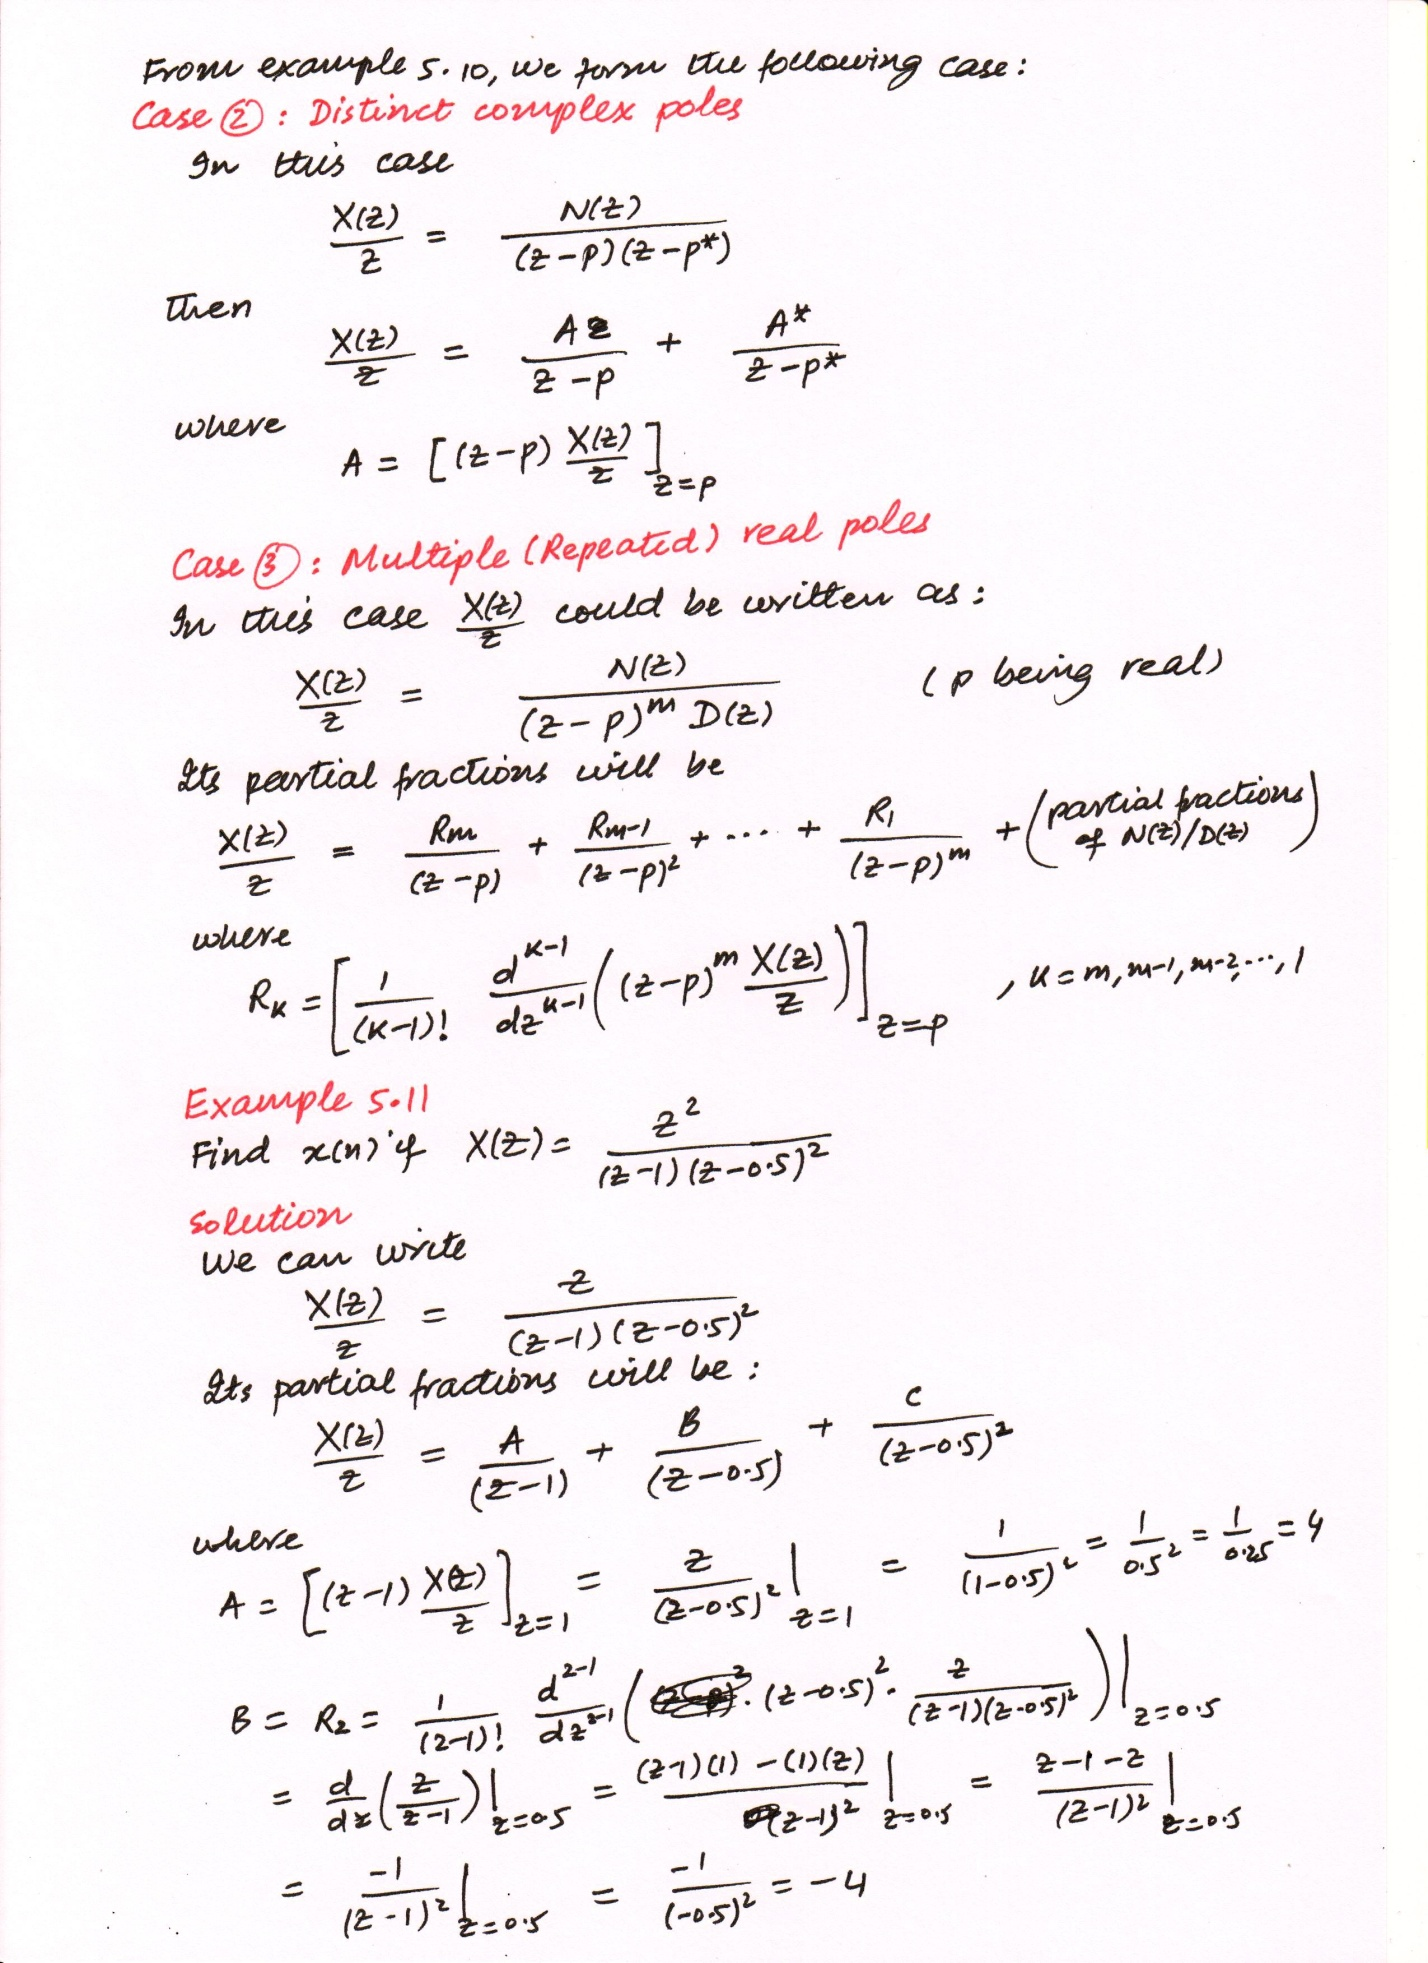 From example 5.10, we form the following case:
Case ②: Distinct complex poles
In this case
X(z)/z = N(z)/((z-p)(z-p*))
then
X(z)/z = A/(z-p) + A*/(z-p*)
where
A = [(z-p) X(z)/z]_{z=p}
Case ③: Multiple (Repeated) real poles
In this case X(z)/z could be written as:
X(z)/z = N(z)/((z-p)^m D(z)) (p being real)
Its partial fractions will be
X(z)/z = Rm/(z-p) + Rm-1/(z-p)^2 + ... + R1/(z-p)^m + (partial fractions of N(z)/D(z))
where
R_K = [1/(K-1)! d^{K-1}/dz^{K-1} ((z-p)^m X(z)/z)]_{z=p} , K = m, m-1, m-2, ..., 1
Example 5.11
Find x(n) if X(z) = z^2/((z-1)(z-0.5)^2)
Solution
We can write
X(z)/z = z/((z-1)(z-0.5)^2)
Its partial fractions will be:
X(z)/z = A/(z-1) + B/(z-0.5) + C/(z-0.5)^2
where
A = [(z-1) X(z)/z]_{z=1} = z/(z-0.5)^2 |_{z=1} = 1/(1-0.5)^2 = 1/0.5^2 = 1/0.25 = 4
B = R2 = 1/(2-1)! d^{2-1}/dz^{2-1} ( . (z-0.5)^2 . z/((z-1)(z-0.5)^2))|_{z=0.5}
= d/dz (z/(z-1))|_{z=0.5} = ((z-1)(1) - (1)(z))/(z-1)^2 |_{z=0.5} = (z-1-z)/(z-1)^2 |_{z=0.5}
= -1/(z-1)^2 |_{z=0.5} = -1/(-0.5)^2 = -4